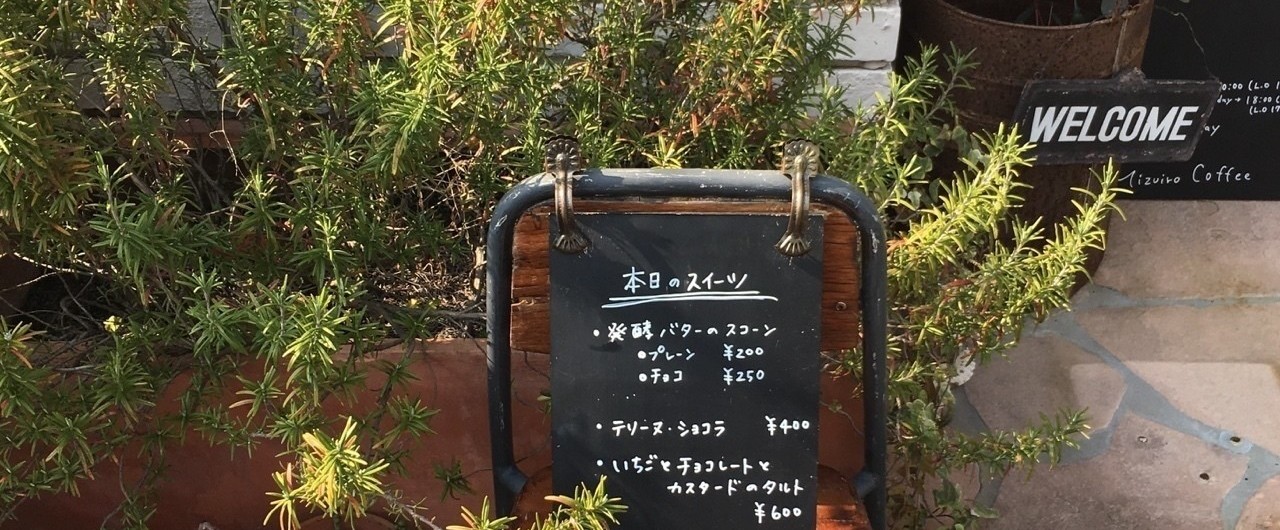 本日のスイーツ
・発酵バターのスコーン
●プレーン ¥200
●チョコ ¥250
・テリーヌ・ショコラ ¥400
・いちごとチョコレートと
カスタードのタルト
¥600
WELCOME
18:00
Mizuiro Coffee